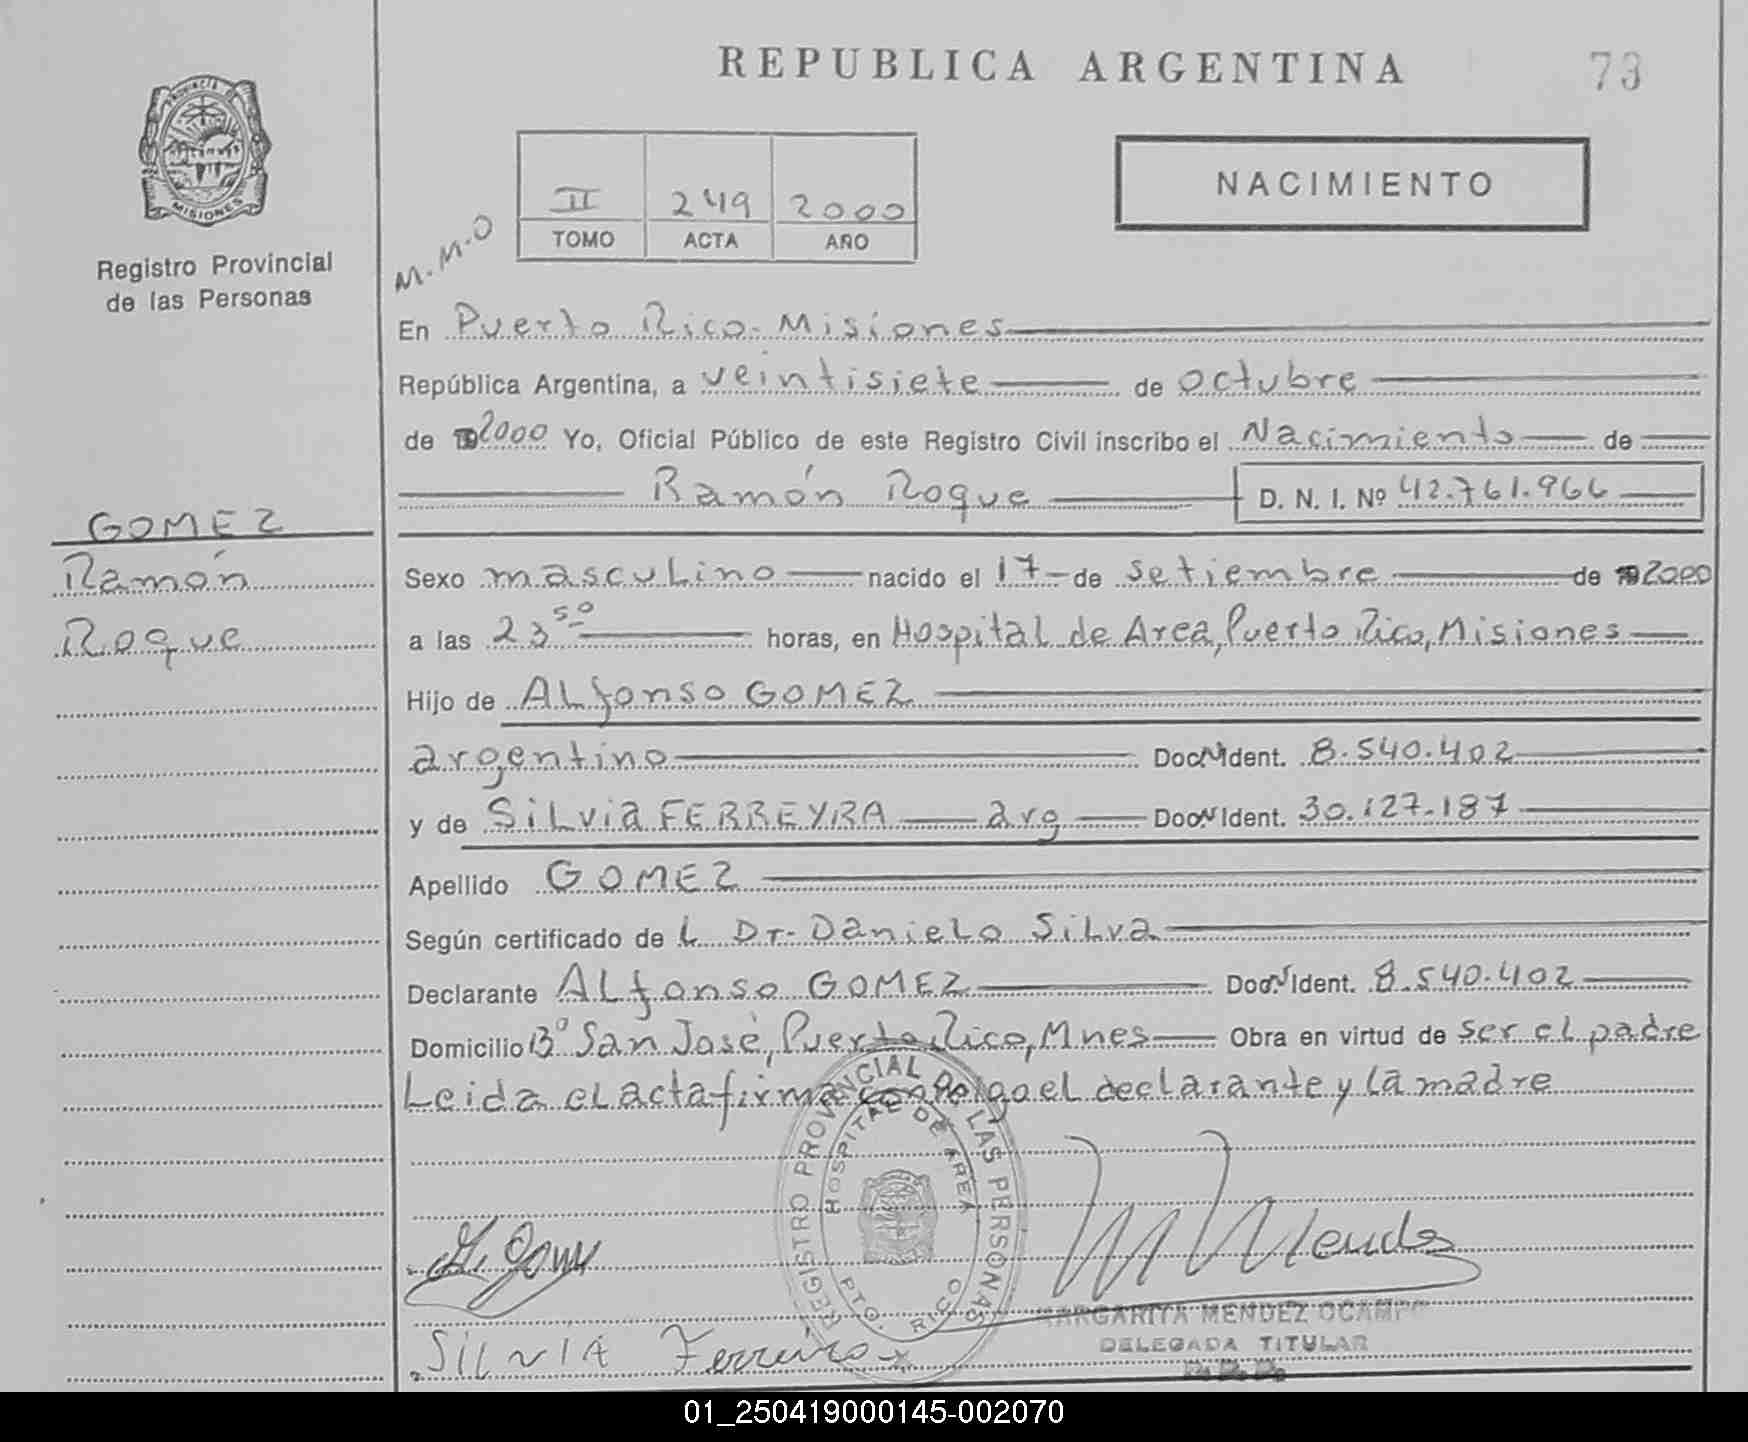 REPUBLICA ARGENTINA
73
PROVINCIA DE
MISIONES
Registro Provincial
de las Personas
II 249 2000
TOMO ACTA AÑO
NACIMIENTO
M.M.O
En Puerto Rico- Misiones
República Argentina, a veintisiete de octubre
de 2000 Yo, Oficial Público de este Registro Civil inscribo el Nacimiento de
Ramón Roque D. N. I. Nº 42.761.966
GOMEZ
Ramón
Roque
Sexo masculino nacido el 17 de setiembre de 2000
a las 23 50 horas, en Hospital de Area, Puerto Rico, Misiones
Hijo de ALfonso GOMEZ
argentino Doc. Ident. 8.540.402
y de SiLvia FERREYRA arg Doc. Ident. 30.127.187
Apellido GOMEZ
Según certificado de L Dr. DanieLo SiLva
Declarante ALfonso GOMEZ Doc. Ident. 8.540.402
Domicilio Bº San José, Puerto Rico, Mnes Obra en virtud de ser el padre
Leida el acta firma conmigo el declarante y la madre
REGISTRO PROVINCIAL DE LAS PERSONAS
HOSPITAL DE AREA
PTO. RICO
Mendez
MARGARITA MENDEZ OCAMPO
DELEGADA TITULAR
SILVIA Ferreira
01_250419000145-002070